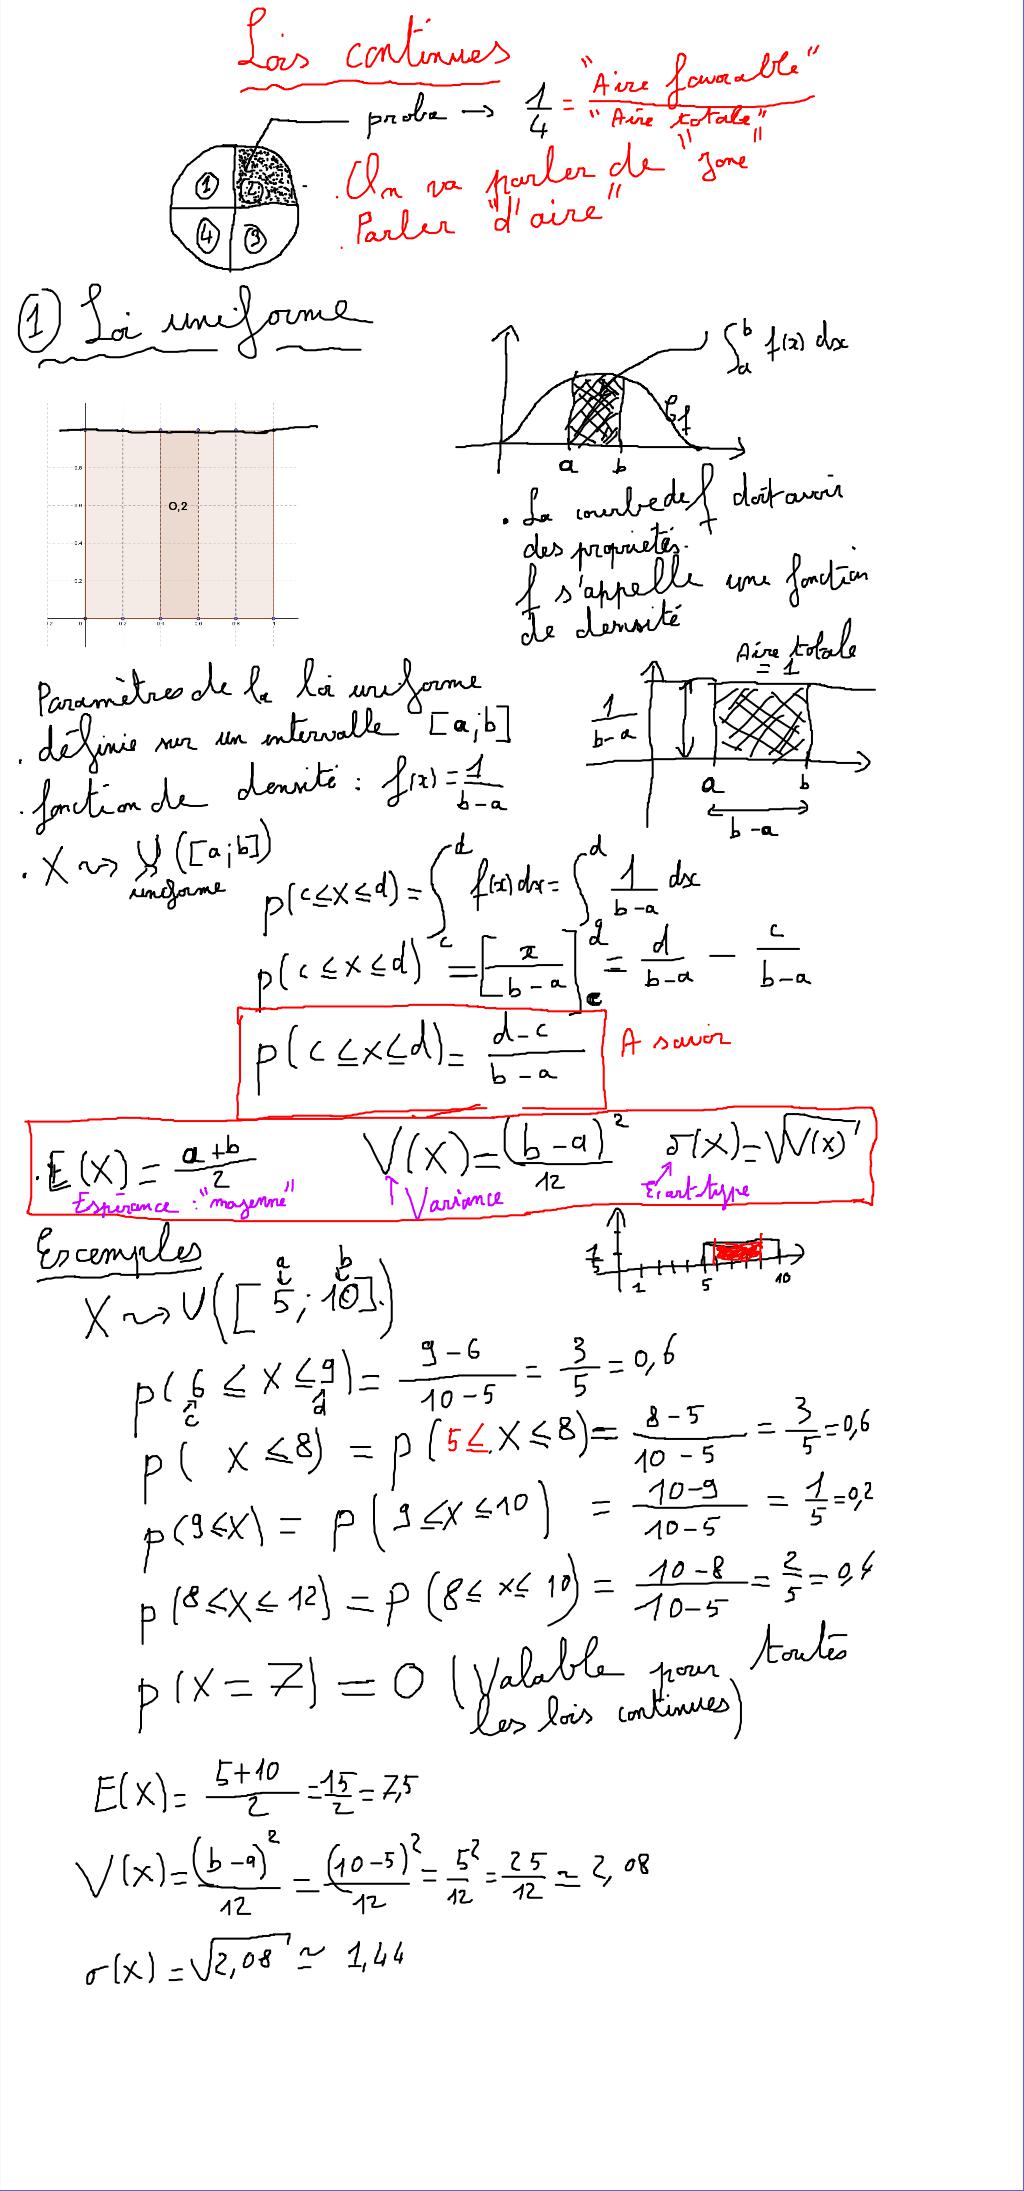 Lois continues
proba → 1/4 = "Aire favorable" / "Aire totale"
1 2
4 3
. On va parler de "zone"
. Parler "d'aire"
① Loi uniforme
∫_a^b f(x) dx
𝒞f
a b
0,2
0.8
0.6
0.4
0.2
0 0.2 0.4 0.6 0.8 1
. La courbe de f doit avoir
des propriétés.
f s'appelle une fonction
de densité
Aire totale
= 1
1/(b-a)
a b
b-a
Paramètres de la loi uniforme
. définie sur un intervalle [a;b]
. fonction de densité : f(x) = 1/(b-a)
. X ⇝ U([a;b])
uniforme
p(c≤X≤d) = ∫_c^d f(x) dx = ∫_c^d 1/(b-a) dx
p(c≤X≤d) = [x/(b-a)]_c^d = d/(b-a) - c/(b-a)
p(c≤X≤d) = (d-c)/(b-a) A savoir
. E(X) = (a+b)/2 V(X) = (b-a)²/12 σ(X) = √V(X)
Espérance : "moyenne" Variance Ecart-type
Exemples
1/5 1 5 10
a b
X ⇝ U([5;10])
p(6≤X≤9) = (9-6)/(10-5) = 3/5 = 0,6
c d
p(X≤8) = p(5≤X≤8) = (8-5)/(10-5) = 3/5 = 0,6
p(9≤X) = p(9≤X≤10) = (10-9)/(10-5) = 1/5 = 0,2
p(8≤X≤12) = p(8≤X≤10) = (10-8)/(10-5) = 2/5 = 0,4
p(X=7) = 0 (Valable pour toutes
les lois continues)
E(X) = (5+10)/2 = 15/2 = 7,5
V(X) = (b-a)²/12 = (10-5)²/12 = 5²/12 = 25/12 ≃ 2,08
σ(X) = √2,08 ≃ 1,44